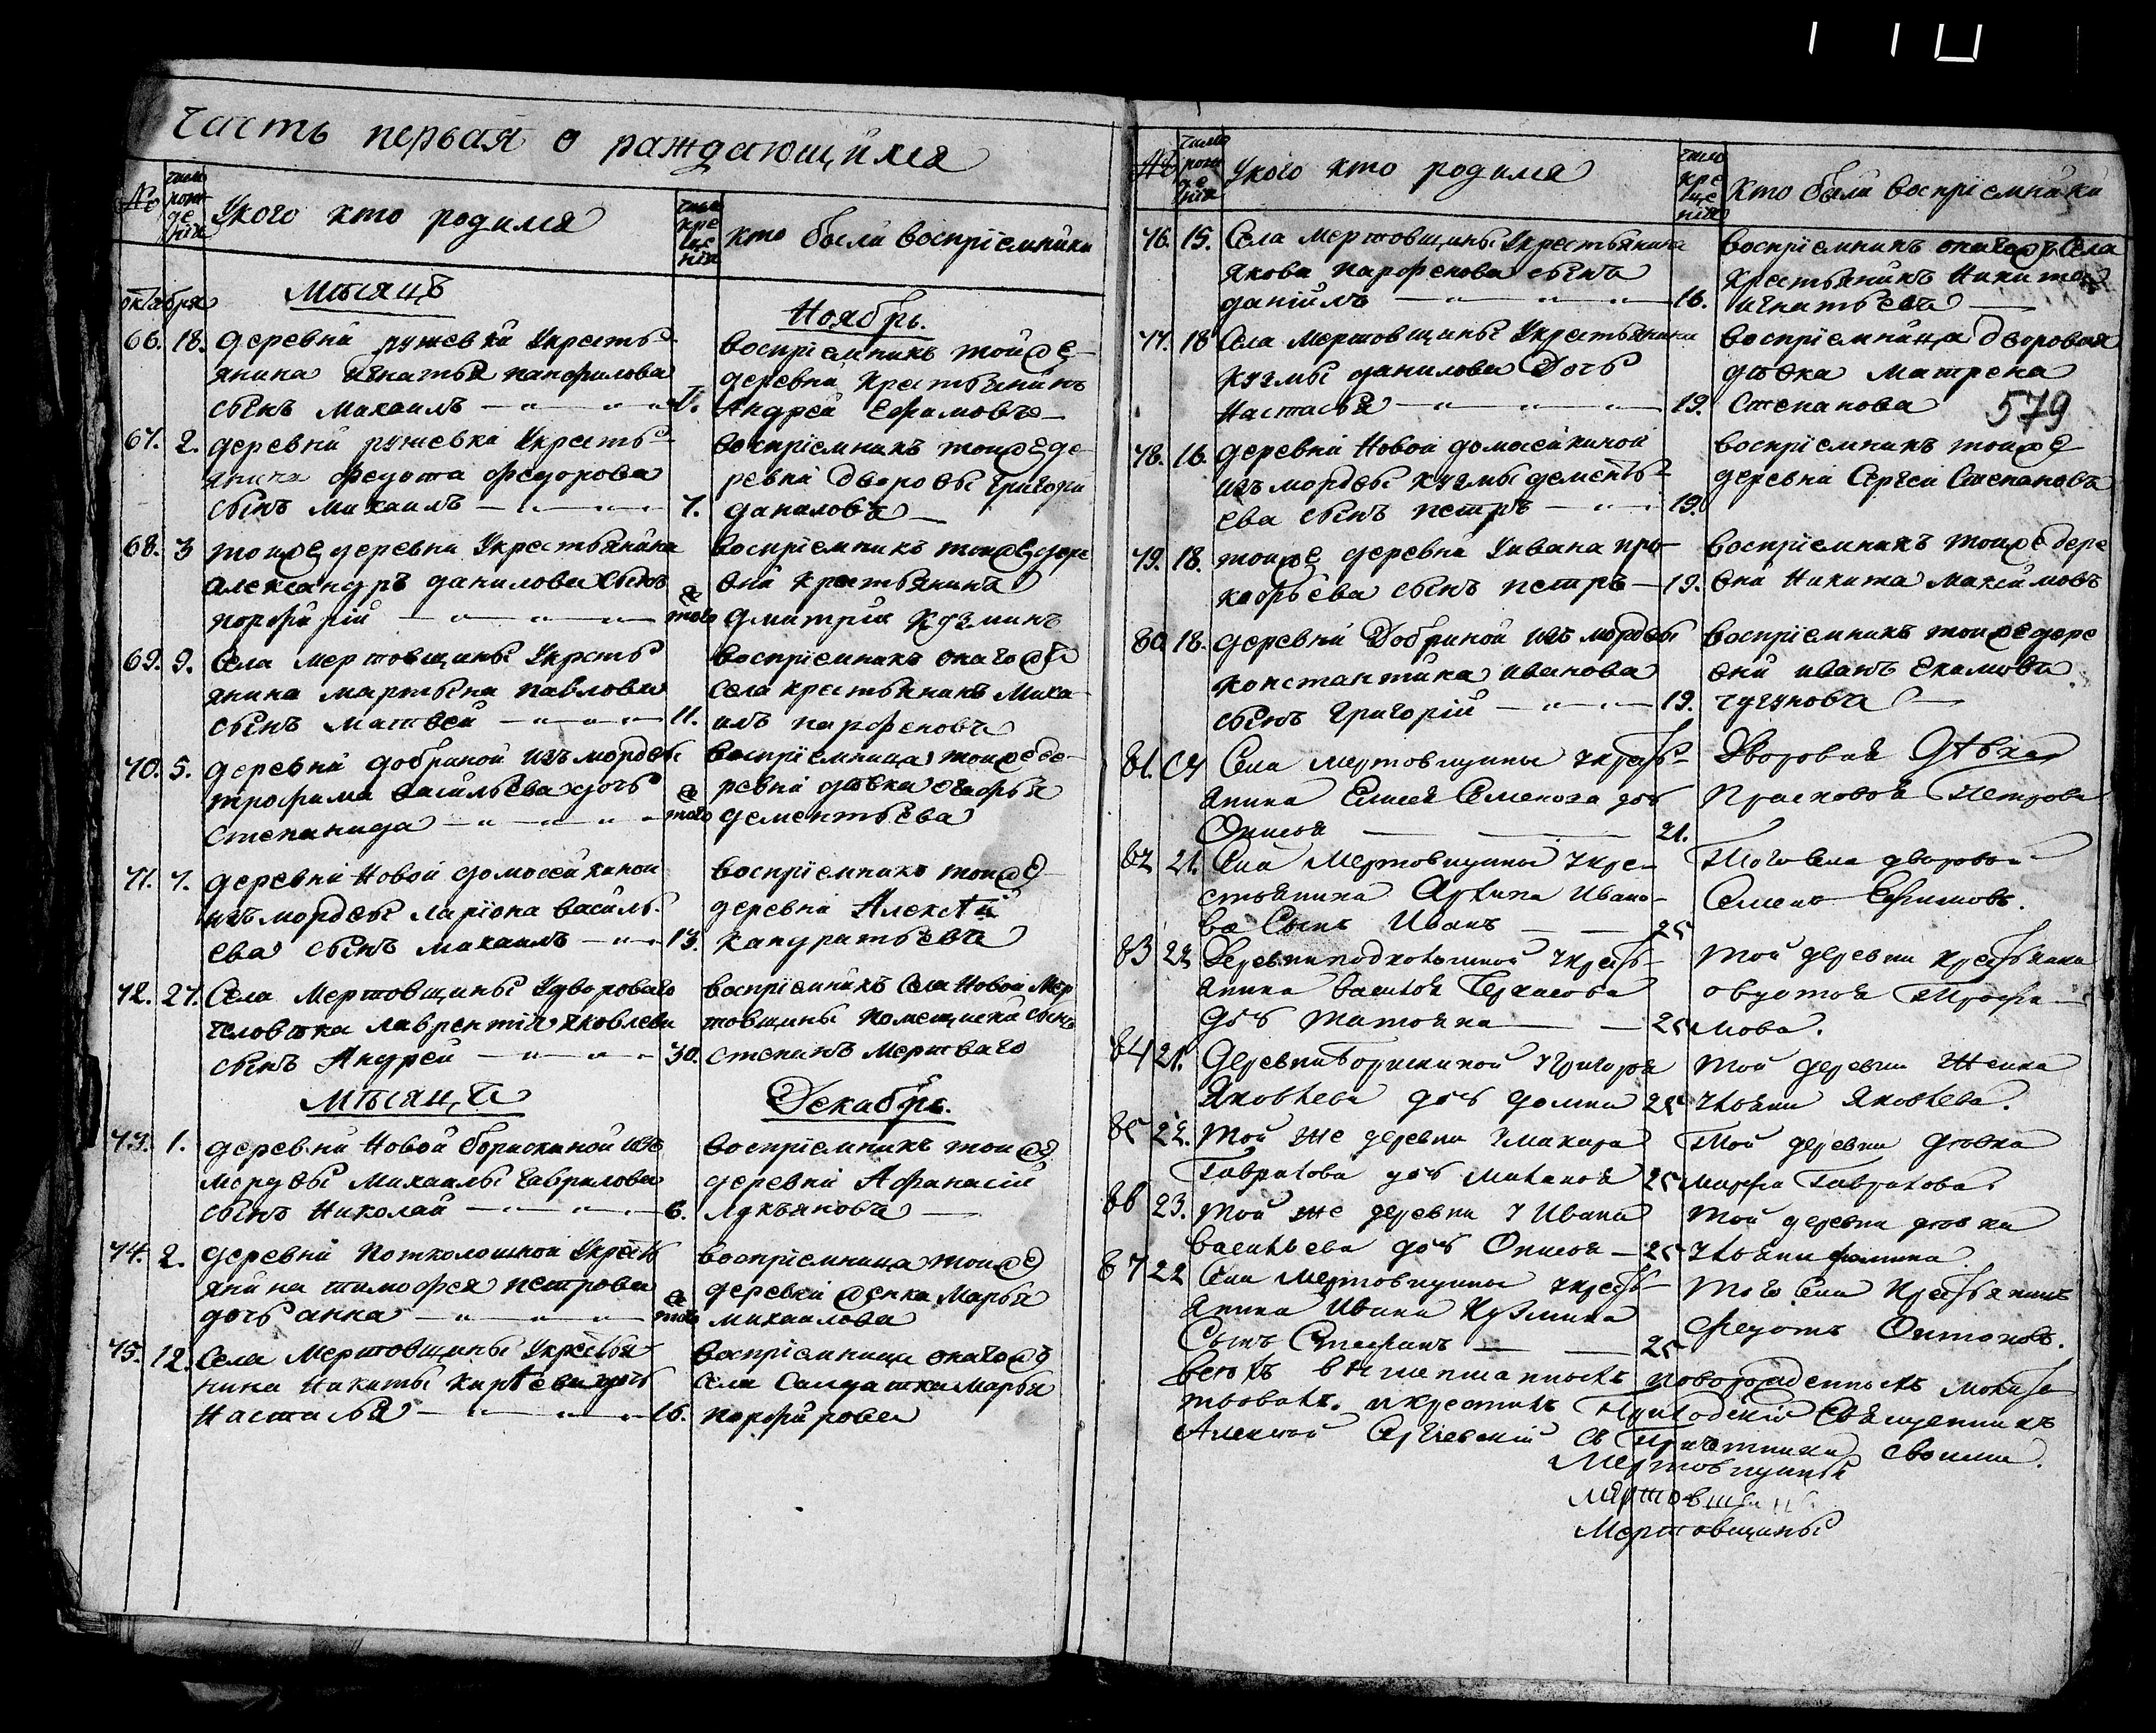 Часть первая о раждающихся
№ число рождения
У кого кто родился
число крещения
кто были восприемники
Мѣсяцъ
Ноябрь.
октября
66. 18. деревни ружевки Укресть-
янина Игнатья панфилова
сынъ Михаилъ 1.
восприемникъ тойже
деревни крестьянинъ
Андрей Ефимовъ
67. 2. деревни ружевки Укресть-
янина федота федорова
сынъ Михаилъ 7.
восприемникъ тойже де-
ревни дворовы Григори
даниловъ
68. 3 тойже деревни Укрестьянина
александръ данилова сынъ
порфирій того
восприемникъ тойже дере
вни крестьянинъ
дмитрий кузминъ
69. 9. Села мертовщины Укресть
янина мартына павлова
сынъ матвей 11.
восприемникъ онагоже
села крестьянинъ Миха-
илъ парфеновъ
70. 5. деревни добриной изъ мордвы
трофима васильева дочь
степанида того
восприемница тойже де-
ревни дѣвка агафья
дементьева
71. 7. деревни Новой домосейкиной
изъ мордвы ларiона василь-
ева сынъ михаилъ 13.
восприемникъ тойже
деревни Алексѣй
кандратьевъ
72. 27. Села Мертовщины Удвороваго
человѣка лаврентiя яковлева
сынъ Андрей 30.
восприемникъ Села Новой Мер
товщины помещика сынъ
степанъ мертваго
мѣсяцъ
Декабрь.
73. 1. деревни Новой борискиной изъ
мордвы михаилы гаврилова
сынъ Николай 6.
восприемникъ тойже
деревни Афанасiй
лукьяновъ
74. 2. деревни потколошной Укресть
янина тимофея петрова
дочь анна того
восприемница тойже
деревни женка марья
михаилова
75. 12. Села Мертовщины Укрестья
нина Никиты кирѣева дочь
Настасья 16.
восприемница онагоже
села солдатка марья
порфирова
№ число рождения
Укого кто родился
число крещения
Кто были восприемники
76. 15. Села мертовщины Укрестьянина
якова парфенова сынъ
данiилъ 16.
восприемникъ онагожъ Села
крестьянинъ Никита
игнатьевъ
77. 18 Села мертовщины Укрестьянина
кузмы данилова дочь
настасья 19.
восприемница дворовая
дѣвка матрена
степанова
579
78. 16. деревни Новой домосейкиной
изъ мордвы кузмы дементь-
ева сынъ петръ 19.
восприемникъ тойже
деревни Сергей Степановъ
79. 18. тойже деревни Уивана про-
кофьева сынъ петръ 19.
восприемникъ тойже дере
вни Никита максимовъ
80 18. деревни Добриной изъ мордвы
константина иванова
сынъ григорiй 19.
восприемникъ тойже дере
вни иванъ екимовъ
чугуновъ
81. Села мертовщины укресть-
янина Елисея Семенова дочь
Онисья 21.
Дворовая дѣвка
Прасковья Петрова
82 21. Села Мертовщины укре-
стьянина Архипа Ивано-
ва Сынъ Иванъ 25
Того села дворовой
Семенъ Ефимовъ.
83 22 Деревни подколошной укресть-
янина Василья Черкасова
дочь татьяна 25
той деревни крестьянка
овдотья Трофи-
мова.
84 21. Деревни борискиной у Григорья
Яковлева дочь домна 25
той деревни женка
ульяна Яковлева.
85 22. той же деревни у макара
Гаврилова дочь маланья 25
Той деревни дѣвка
марфа Гаврилова
86 23. той же деревни у Ивана
васильева дочь Онисья 25
той деревни дѣвка
ульяна фомина.
87 22 Села мертовщины укресть-
янина Ивана Кузмина
Сынъ Стефанъ 25
того села крестьянинъ
федотъ Онтоновъ.
всехъ вышеписанныхъ новорожденныхъ молитв-
твовалъ и крестилъ Приходскiй Священникъ
Алексей Сергиевскiй съ Причетники своими.
Мертовщины
мертовщины
Мертовщины